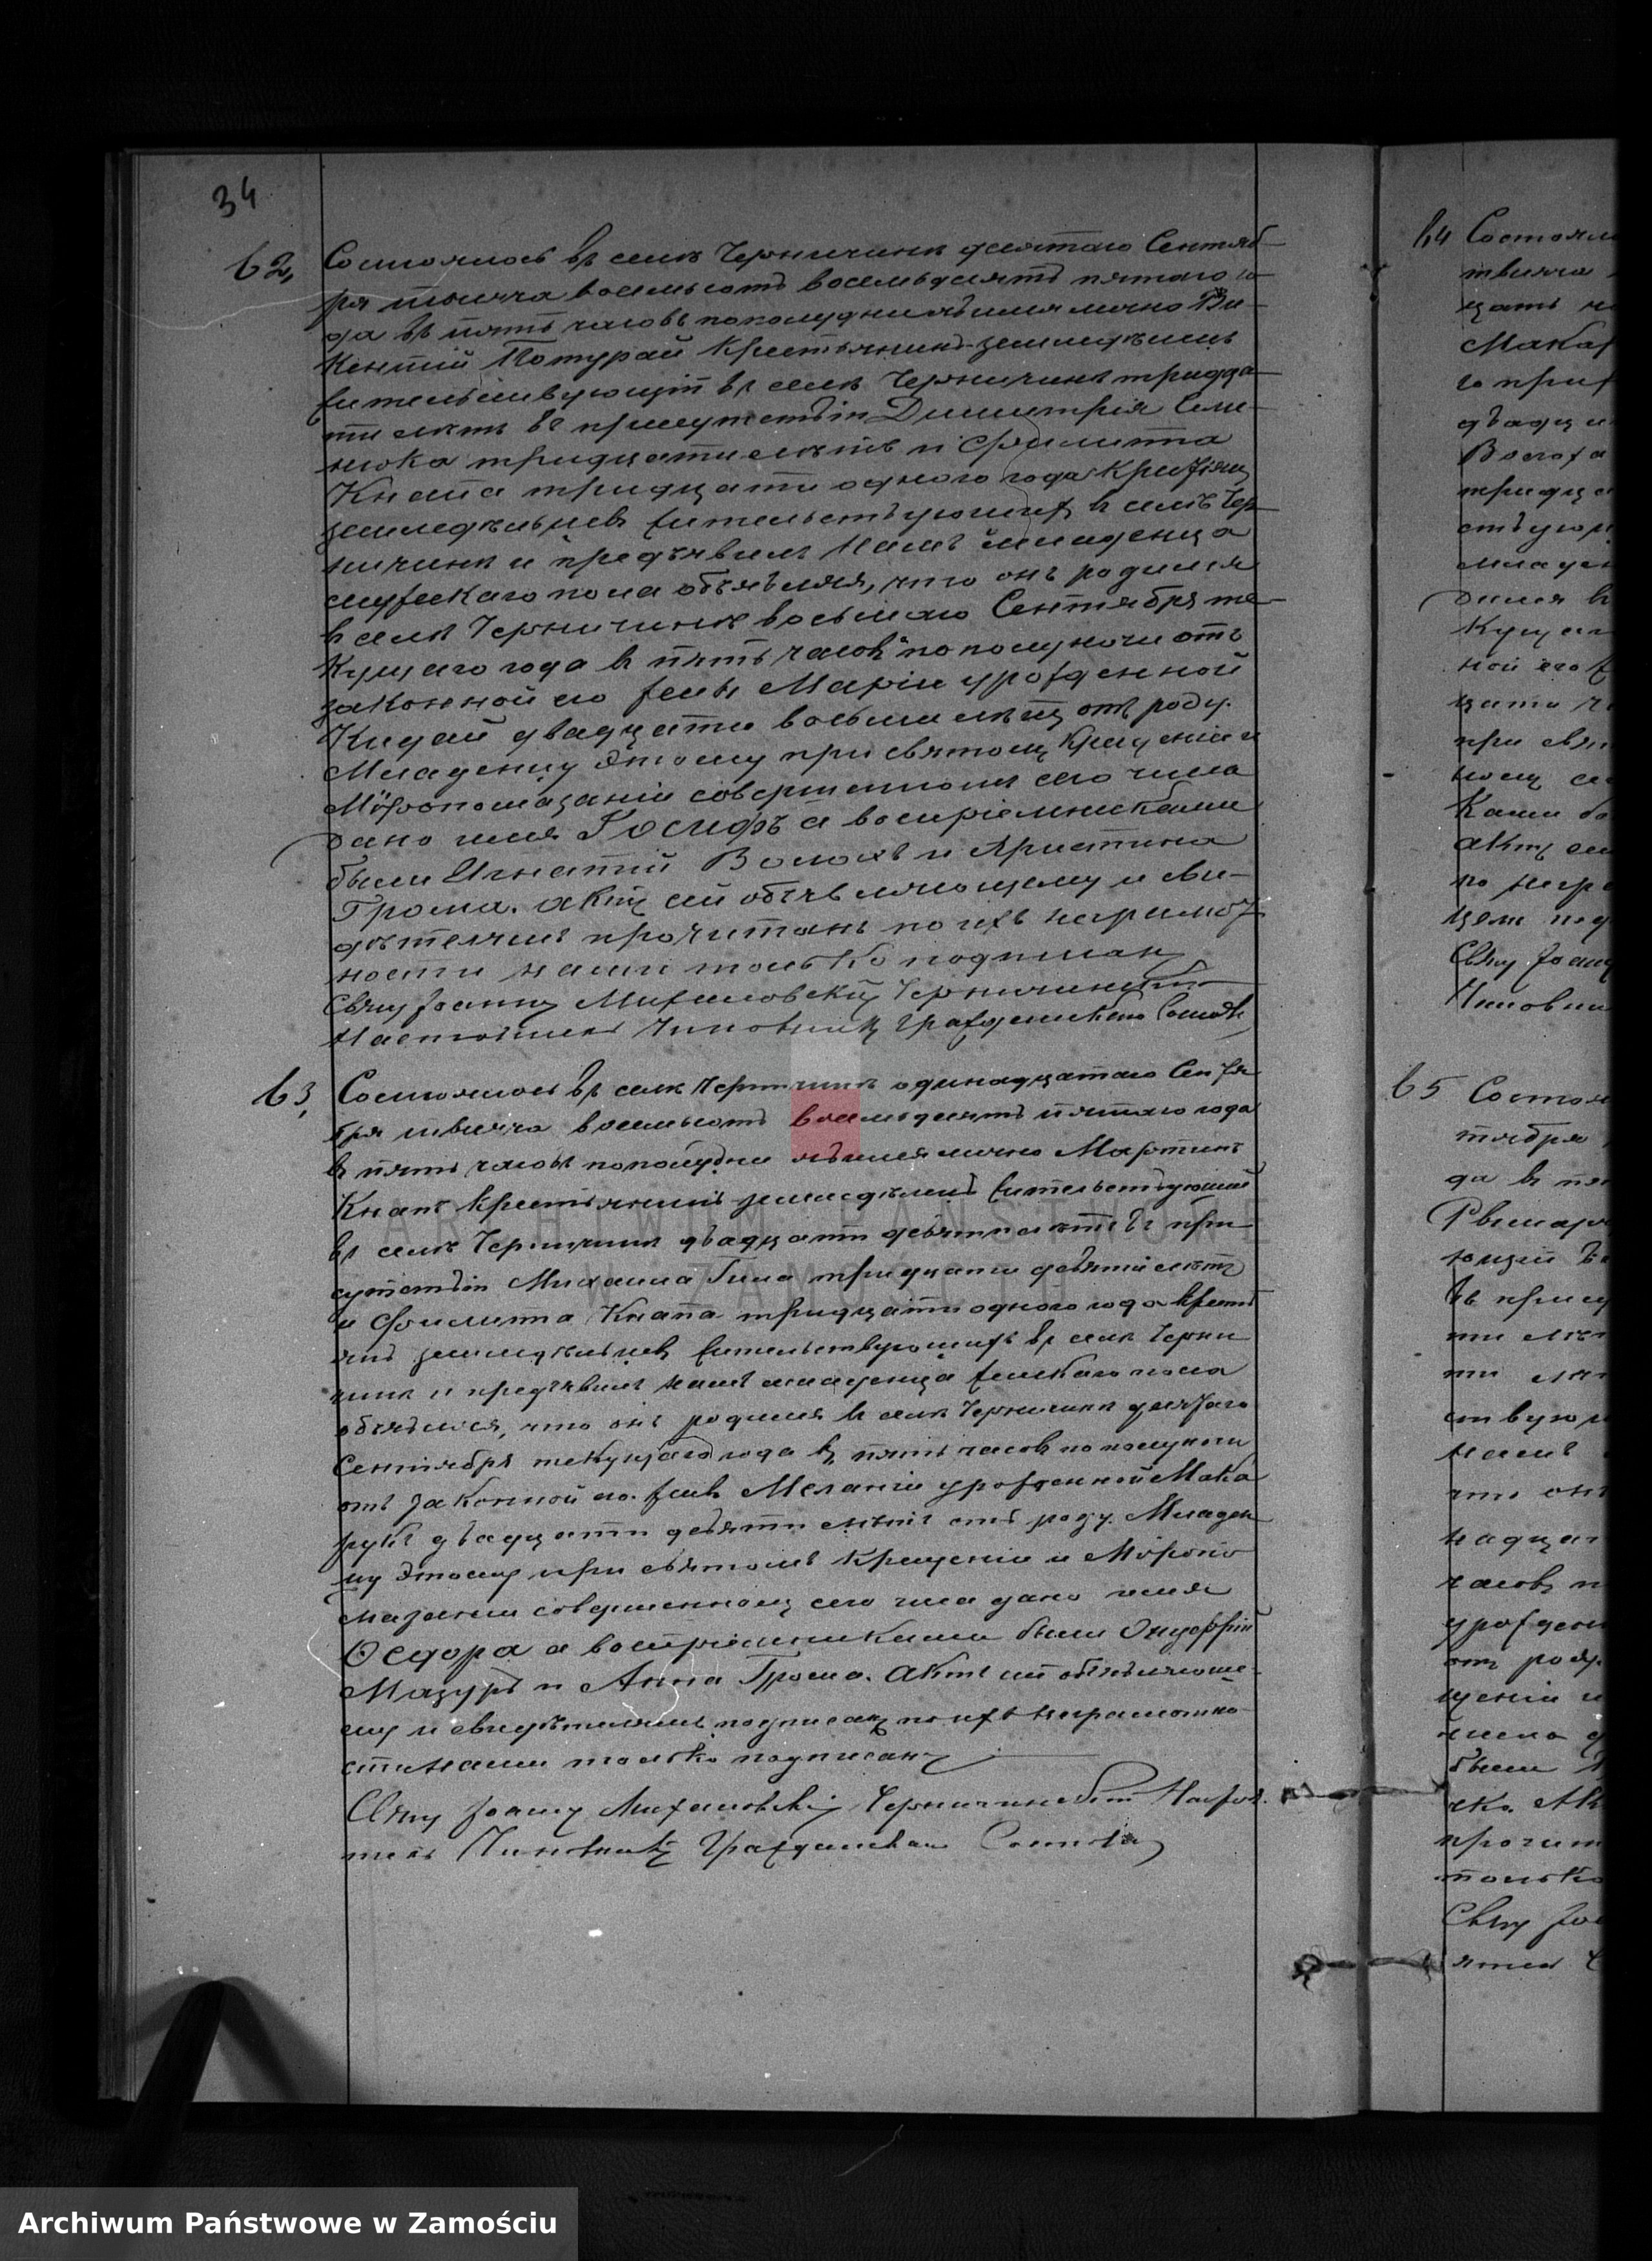 34
62,
Состоялось въ селѣ Черничинѣ десятаго Сентяб-
ря тысяча восемьсотъ восемьдесятъ пятаго го-
да въ пять часовъ пополудни явился лично Ви-
кентій Потурай крестьянинъ-земледѣлецъ
жительствующій въ селѣ Черничинѣ тридца-
ти лѣтъ въ присутствіи Димитрія Семе-
нюка тридцати лѣтъ и Филиппа
Кнапа тридцати одного года крестьянъ
земледѣльцевъ жительствующихъ въ селѣ Чер-
ничинѣ и предъявилъ Намъ младенца
мужескаго пола объявляя, что онъ родился
въ селѣ Черничинѣ восьмаго Сентября те-
кущаго года въ пять часовъ пополуночи отъ
законной его жены Маріи урожденной
Кидай двадцати восьми лѣтъ отъ роду.
Младенцу этому при святомъ Крещеніи и
Мѵропомазаніи совершенномъ сего числа
дано имя Іосифъ а воспріемниками
были Игнатій Волохъ и Христина
Грома. Актъ сей объявляющему и сви-
дѣтелямъ прочитанъ по ихъ неграмот-
ности нами только подписанъ
Свящ Іоаннъ Михаловскій Черничинскій
Настоятель Чиновникъ Гражданскаго Состоя
63,
Состоялось въ селѣ Черничинѣ одинадцатаго Сентя
бря тысяча восемьсотъ восемьдесятъ пятаго года
въ пять часовъ пополудни явился лично Мартинъ
Кнапъ крестьянинъ земледѣлецъ жительствующій
въ селѣ Черничинѣ двадцати девяти лѣтъ въ при-
сутствіи Михаила Гила тридцати девяти лѣтъ
и Филиппа Кнапа тридцати одного года крестъ
янъ земледѣльцевъ жительствующихъ въ селѣ Черни
чинѣ и предъявилъ намъ младенца женскаго пола
объявляя, что онъ родился въ селѣ Черничинѣ десятаго
Сентября текущаго года въ пять часовъ пополуночи
отъ законной его жены Меланіи урожденной Мака
рукъ двадцати девяти лѣтъ отъ роду. Младен
цу этому при святомъ Крещеніи и Мѵропо
мазаніи совершенномъ сего числа дано имя
Ѳедора а воспріемниками были Онуфрій
Мазуръ и Анна Грома. Актъ сей объявляюще-
му и свидѣтелямъ подписанъ по ихъ неграмотно
сти нами только подписанъ
Свящ Іоаннъ Михаловскій Черничинскій Настоя
тель Чиновникъ Гражданскаго Состоя
64 Состоял
тысяча
цать
Макар
го прис
двадц
Волоха
тридца
ствующ
младен
дился въ
Кущаг
ной его
цати
при свя
Ками бы
актъ сей
по негра
Свящ Іоан
Чиновни
65 Состоя
тября
да въ пя
ющій въ
въ прису
ти лѣт
ствующ
намъ
что онъ
надцат
часовъ п
урожден
отъ роду.
щеніи и
числа д
были
прочит
только
Свящ Іоа
ARCHIWUM PAŃSTWOWE
W ZAMOŚCIU
Archiwum Państwowe w Zamościu